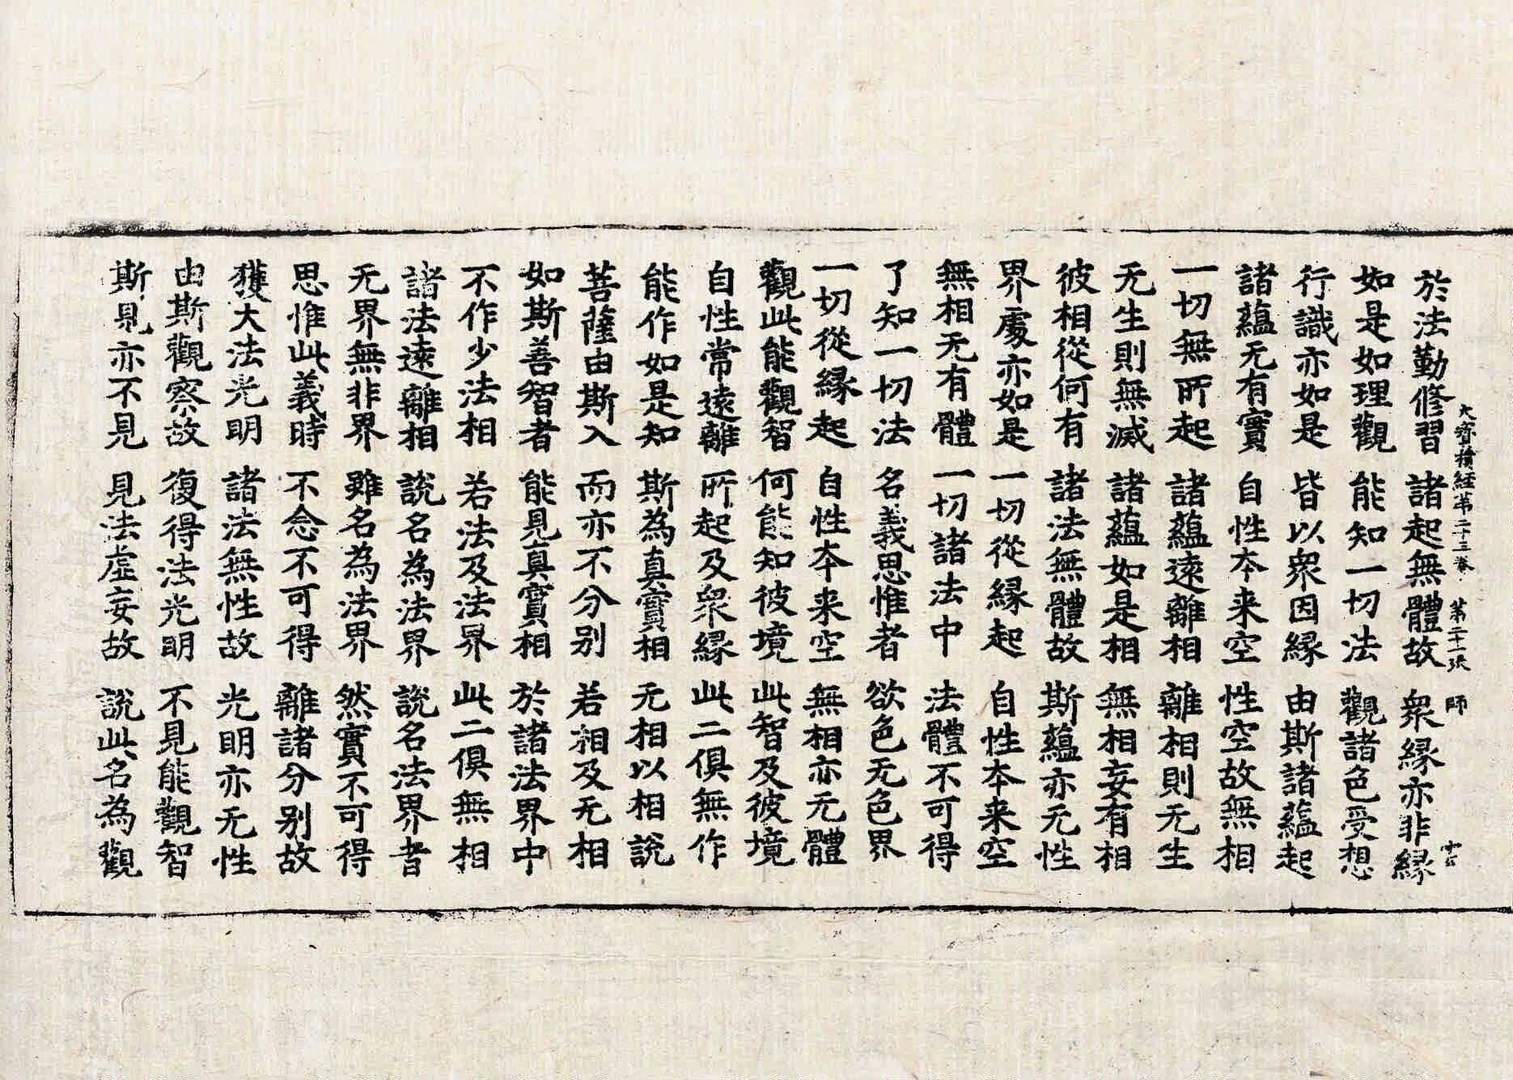 大寶積經第二十三卷 第二十一張 師
於法勤修習 諸起無體故 衆縁亦非縁
如是如理觀 能知一切法 觀諸色受想
行識亦如是 皆以衆因縁 由斯諸蘊起
諸蘊无有實 自性本来空 性空故無相
一切無所起 諸蘊遠離相 離相則无生
无生則無滅 諸蘊如是相 無相妄有相
彼相從何有 諸法無體故 斯蘊亦无性
界處亦如是 一切從縁起 自性本来空
無相无有體 一切諸法中 法體不可得
了知一切法 名義思惟者 欲色无色界
一切從縁起 自性本来空 無相亦无體
觀此能觀智 何能知彼境 此智及彼境
自性常遠離 所起及衆縁 此二俱無作
能作如是知 斯為真實相 无相以相説
菩薩由斯入 而亦不分别 若相及无相
如斯善智者 能見真實相 於諸法界中
不作少法相 若法及法界 此二俱無相
諸法遠離相 說名為法界 說名法界者
无界無非界 雖名為法界 然實不可得
思惟此義時 不念不可得 離諸分别故
獲大法光明 諸法無性故 光明亦无性
由斯觀察故 復得法光明 不見能觀智
斯見亦不見 見法虛妄故 說此名為觀